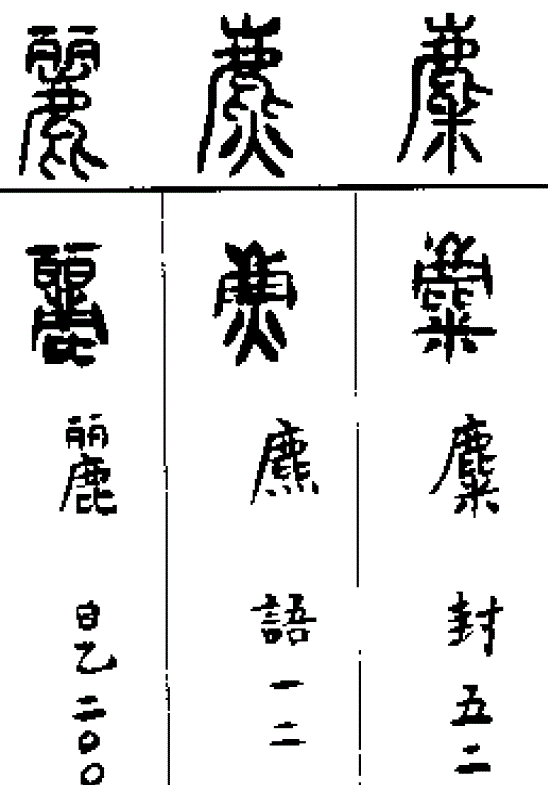 麋 麋 麋 封五二
麃 麃 麃 語一二
麗 麗 麗 日乙二〇〇